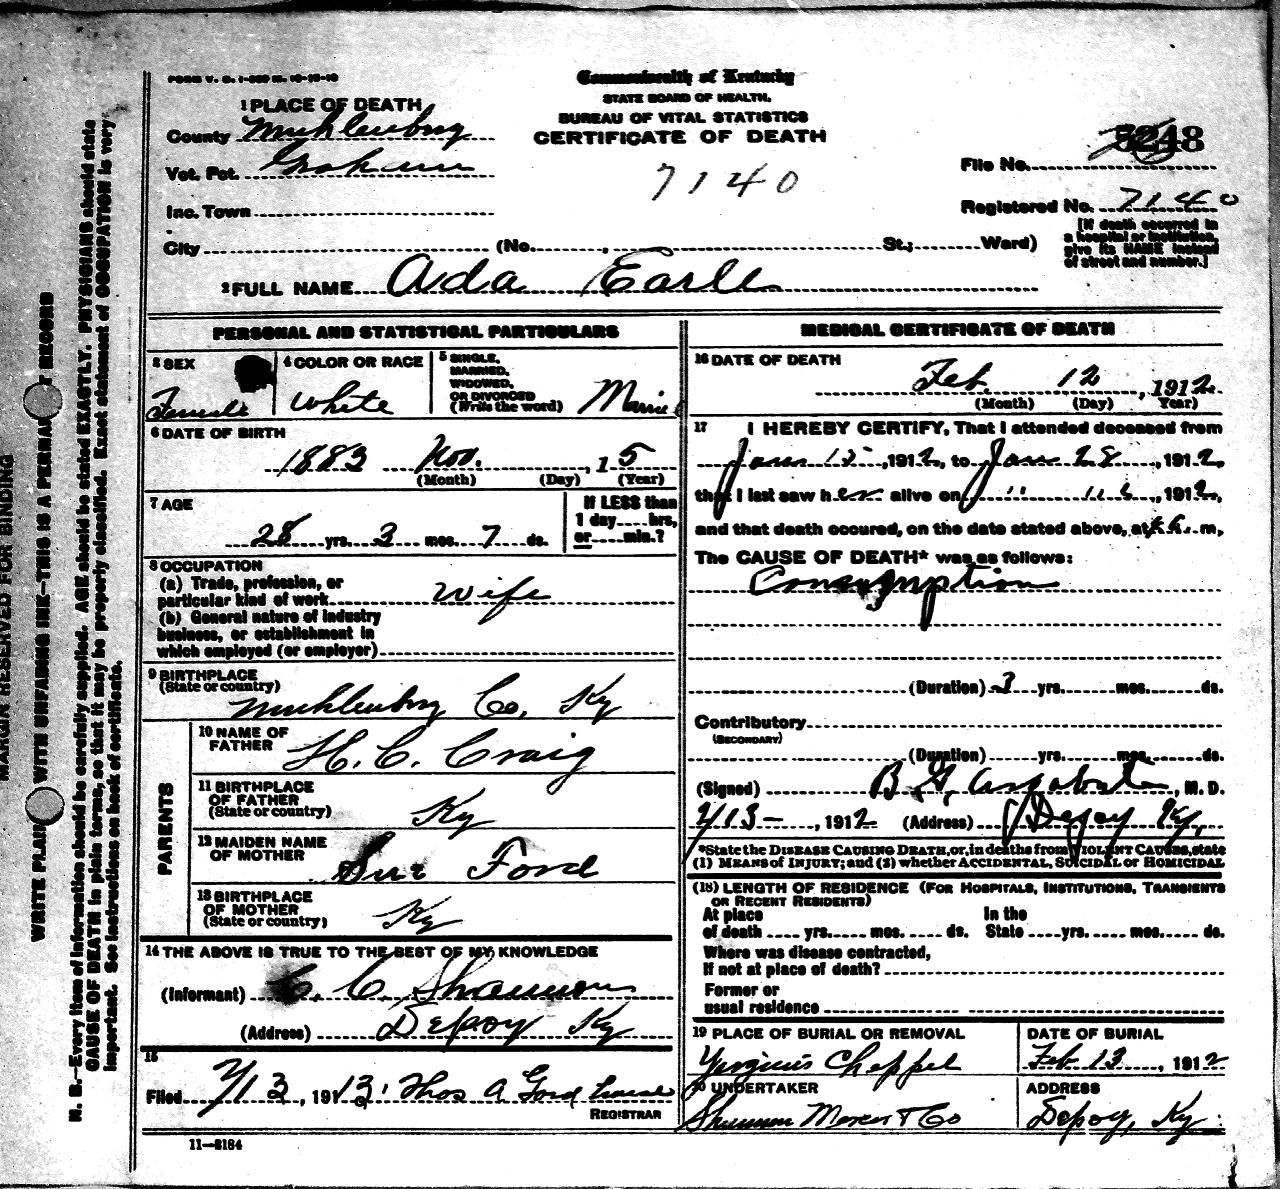 FORM V. S. 1-
Commonwealth of Kentucky
STATE BOARD OF HEALTH.
BUREAU OF VITAL STATISTICS
CERTIFICATE OF DEATH
1 PLACE OF DEATH
County Muhlenburg
Vot. Pct. Graham
Inc. Town
City (No. , St.; Ward)
7140
File No. 5248
Registered No. 7140
[If death occurred in a hospital or institution, give its NAME instead of street and number.]
2 FULL NAME Ada Earle
PERSONAL AND STATISTICAL PARTICULARS
3 SEX
Female
4 COLOR OR RACE
White
5 SINGLE, MARRIED, WIDOWED, OR DIVORCED (Write the word)
Married
6 DATE OF BIRTH
1883 Nov. , 1 5
(Month) (Day) (Year)
7 AGE
28 yrs. 3 mos. 7 ds.
If LESS than 1 day hrs, or min.?
8 OCCUPATION
(a) Trade, profession, or particular kind of work Wife
(b) General nature of industry business, or establishment in which employed (or employer)
9 BIRTHPLACE
(State or country)
Muhlenburg Co, Ky
PARENTS
10 NAME OF FATHER
H. C. Craig
11 BIRTHPLACE OF FATHER (State or country)
Ky
12 MAIDEN NAME OF MOTHER
Sue Ford
13 BIRTHPLACE OF MOTHER (State or country)
Ky
14 THE ABOVE IS TRUE TO THE BEST OF MY KNOWLEDGE
(Informant) C. C. Shannon
(Address) Depoy Ky
15
Filed 2/13, 1913. Thos A Ford
REGISTRAR
11-2184
MEDICAL CERTIFICATE OF DEATH
16 DATE OF DEATH
Feb. 12, 1912
(Month) (Day) Year)
17 I HEREBY CERTIFY, That I attended deceased from
Jan 15, 1912, to Jan 28, 1912,
that I last saw her alive on " " , 1912,
and that death occured, on the date stated above, at m,
The CAUSE OF DEATH* was as follows:
Consumption
(Duration) 3 yrs. mos. ds.
Contributory
(SECONDARY)
(Duration) yrs. mos. ds.
(Signed) B. G. , M. D.
2/13-, 1912 (Address) Depoy Ky,
*State the DISEASE CAUSING DEATH, or, in deaths from VIOLENT CAUSES, state
(1) MEANS of INJURY; and (2) whether ACCIDENTAL, SUICIDAL or HOMICIDAL
(18) LENGTH OF RESIDENCE (FOR HOSPITALS, INSTITUTIONS, TRANSIENTS OR RECENT RESIDENTS)
At place of death yrs. mos. ds. In the State yrs. mos. ds.
Where was disease contracted,
If not at place of death?
Former or
usual residence
19 PLACE OF BURIAL OR REMOVAL
Chappel
DATE OF BURIAL
Feb 13, 1912
20 UNDERTAKER
Shannon & Co
ADDRESS
Depoy, Ky.
MARGIN RESERVED FOR BINDING
WRITE PLAINLY WITH UNFADING INK—THIS IS A PERMANENT RECORD
N. B.—Every item of information should be carefully supplied. AGE should be stated EXACTLY. PHYSICIANS should state
CAUSE OF DEATH in plain terms, so that it may be properly classified. Exact statement of OCCUPATION is very
important. See instructions on back of certificate.